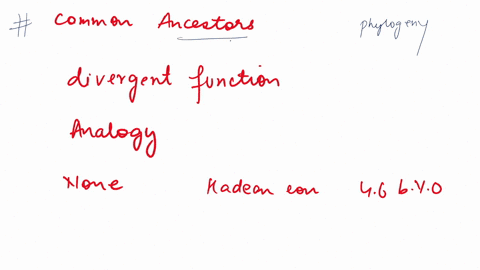 # Common Ancestors phylogeny
divergent function
Analogy
None Hadean eon 4.6 b.Y.O